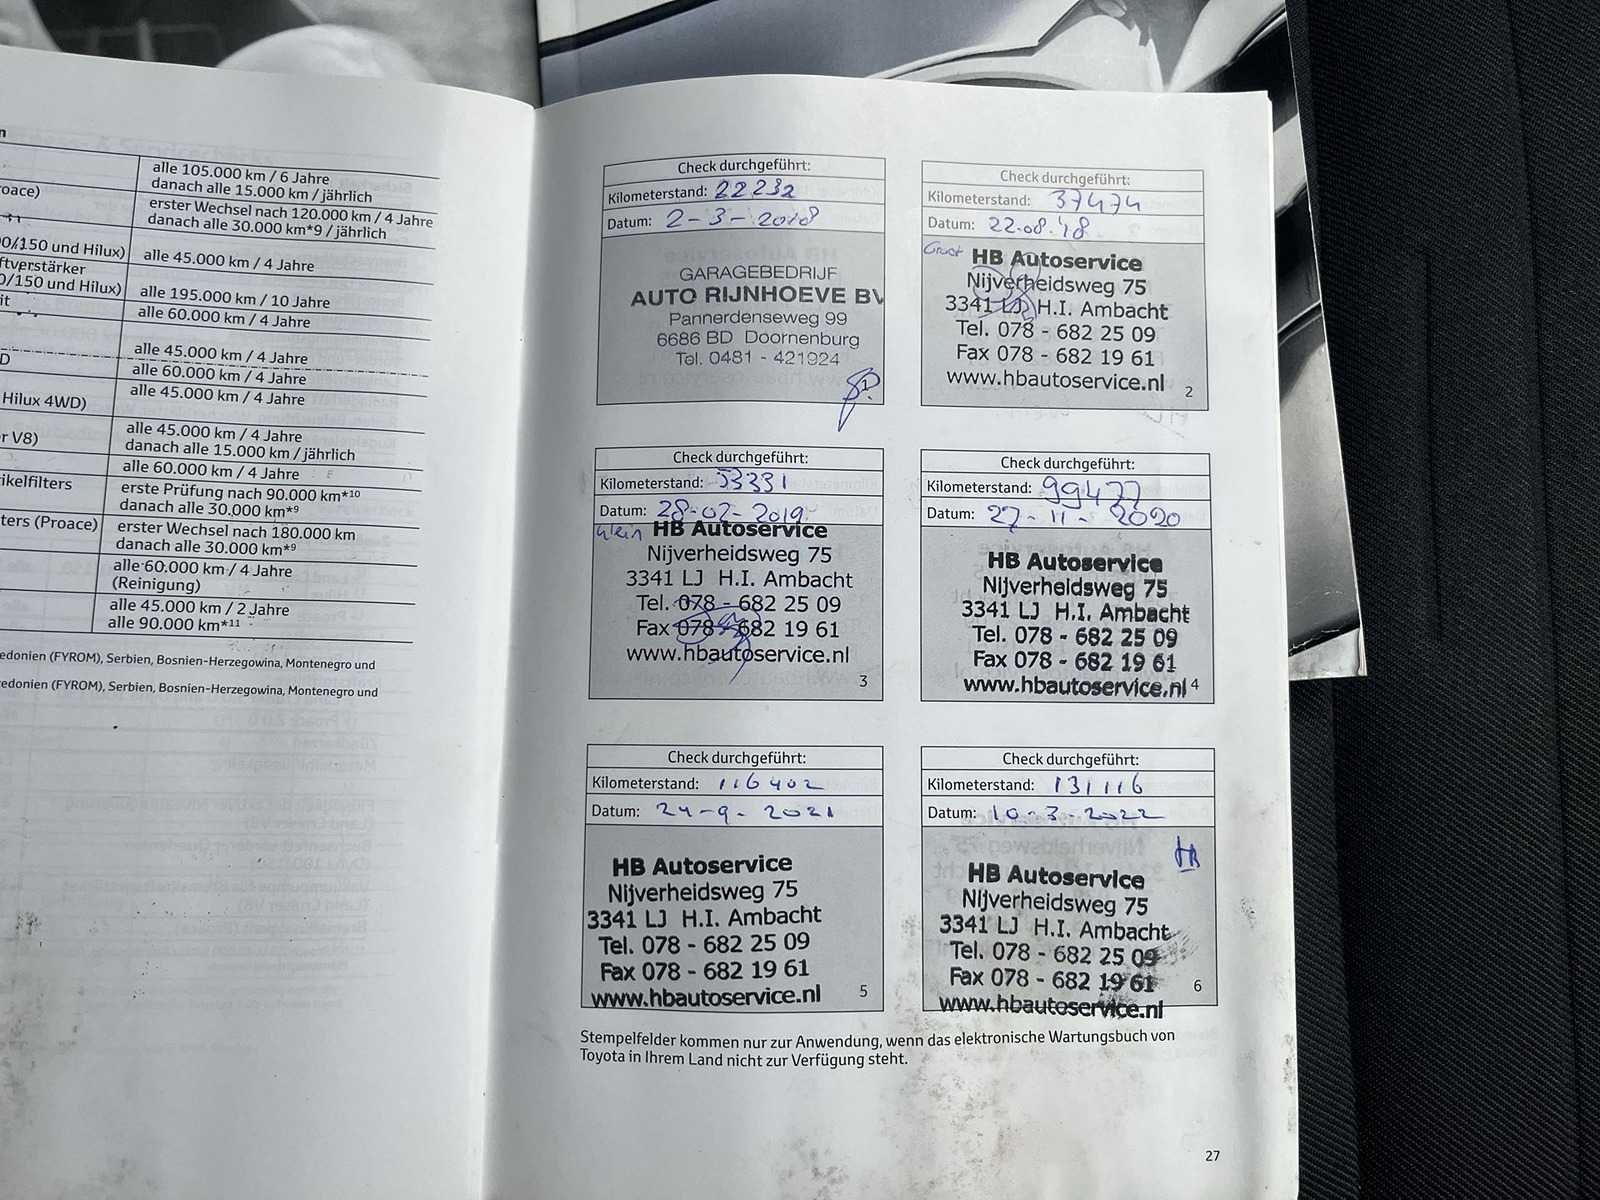 alle 105.000 km / 6 Jahre
danach alle 15.000 km / jährlich
roace)
erster Wechsel nach 120.000 km / 4 Jahre
danach alle 30.000 km*9 / jährlich
00/150 und Hilux)
alle 45.000 km / 4 Jahre
ftverstärker
0/150 und Hilux)
alle 195.000 km / 10 Jahre
it
alle 60.000 km / 4 Jahre
alle 45.000 km / 4 Jahre
D
alle 60.000 km / 4 Jahre
Hilux 4WD)
alle 45.000 km / 4 Jahre
r V8)
alle 45.000 km / 4 Jahre
danach alle 15.000 km / jährlich
alle 60.000 km / 4 Jahre
ikelfilters
erste Prüfung nach 90.000 km*10
danach alle 30.000 km*9
ters (Proace)
erster Wechsel nach 180.000 km
danach alle 30.000 km*9
alle 60.000 km / 4 Jahre
(Reinigung)
alle 45.000 km / 2 Jahre
alle 90.000 km*11
edonien (FYROM), Serbien, Bosnien-Herzegowina, Montenegro und
edonien (FYROM), Serbien, Bosnien-Herzegowina, Montenegro und
Check durchgeführt:
Kilometerstand: 22232
Datum: 2-3-2018
GARAGEBEDRIJF
AUTO RIJNHOEVE BV
Pannerdenseweg 99
6686 BD Doornenburg
Tel. 0481 - 421924
1
Check durchgeführt:
Kilometerstand: 37474
Datum: 22.08.'18
Groot
HB Autoservice
Nijverheidsweg 75
3341 LJ H.I. Ambacht
Tel. 078 - 682 25 09
Fax 078 - 682 19 61
www.hbautoservice.nl
2
Check durchgeführt:
Kilometerstand: 53331
Datum: 28-02-2019
klein
HB Autoservice
Nijverheidsweg 75
3341 LJ H.I. Ambacht
Tel. 078 - 682 25 09
Fax 078 - 682 19 61
www.hbautoservice.nl
3
Check durchgeführt:
Kilometerstand: 99477
Datum: 27-11-2020
HB Autoservice
Nijverheidsweg 75
3341 LJ H.I. Ambacht
Tel. 078 - 682 25 09
Fax 078 - 682 19 61
www.hbautoservice.nl
4
Check durchgeführt:
Kilometerstand: 116402
Datum: 24-9-2021
HB Autoservice
Nijverheidsweg 75
3341 LJ H.I. Ambacht
Tel. 078 - 682 25 09
Fax 078 - 682 19 61
www.hbautoservice.nl
5
Check durchgeführt:
Kilometerstand: 131116
Datum: 10-3-2022
HB
HB Autoservice
Nijverheidsweg 75
3341 LJ H.I. Ambacht
Tel. 078 - 682 25 09
Fax 078 - 682 19 61
www.hbautoservice.nl
6
Stempelfelder kommen nur zur Anwendung, wenn das elektronische Wartungsbuch von
Toyota in Ihrem Land nicht zur Verfügung steht.
27